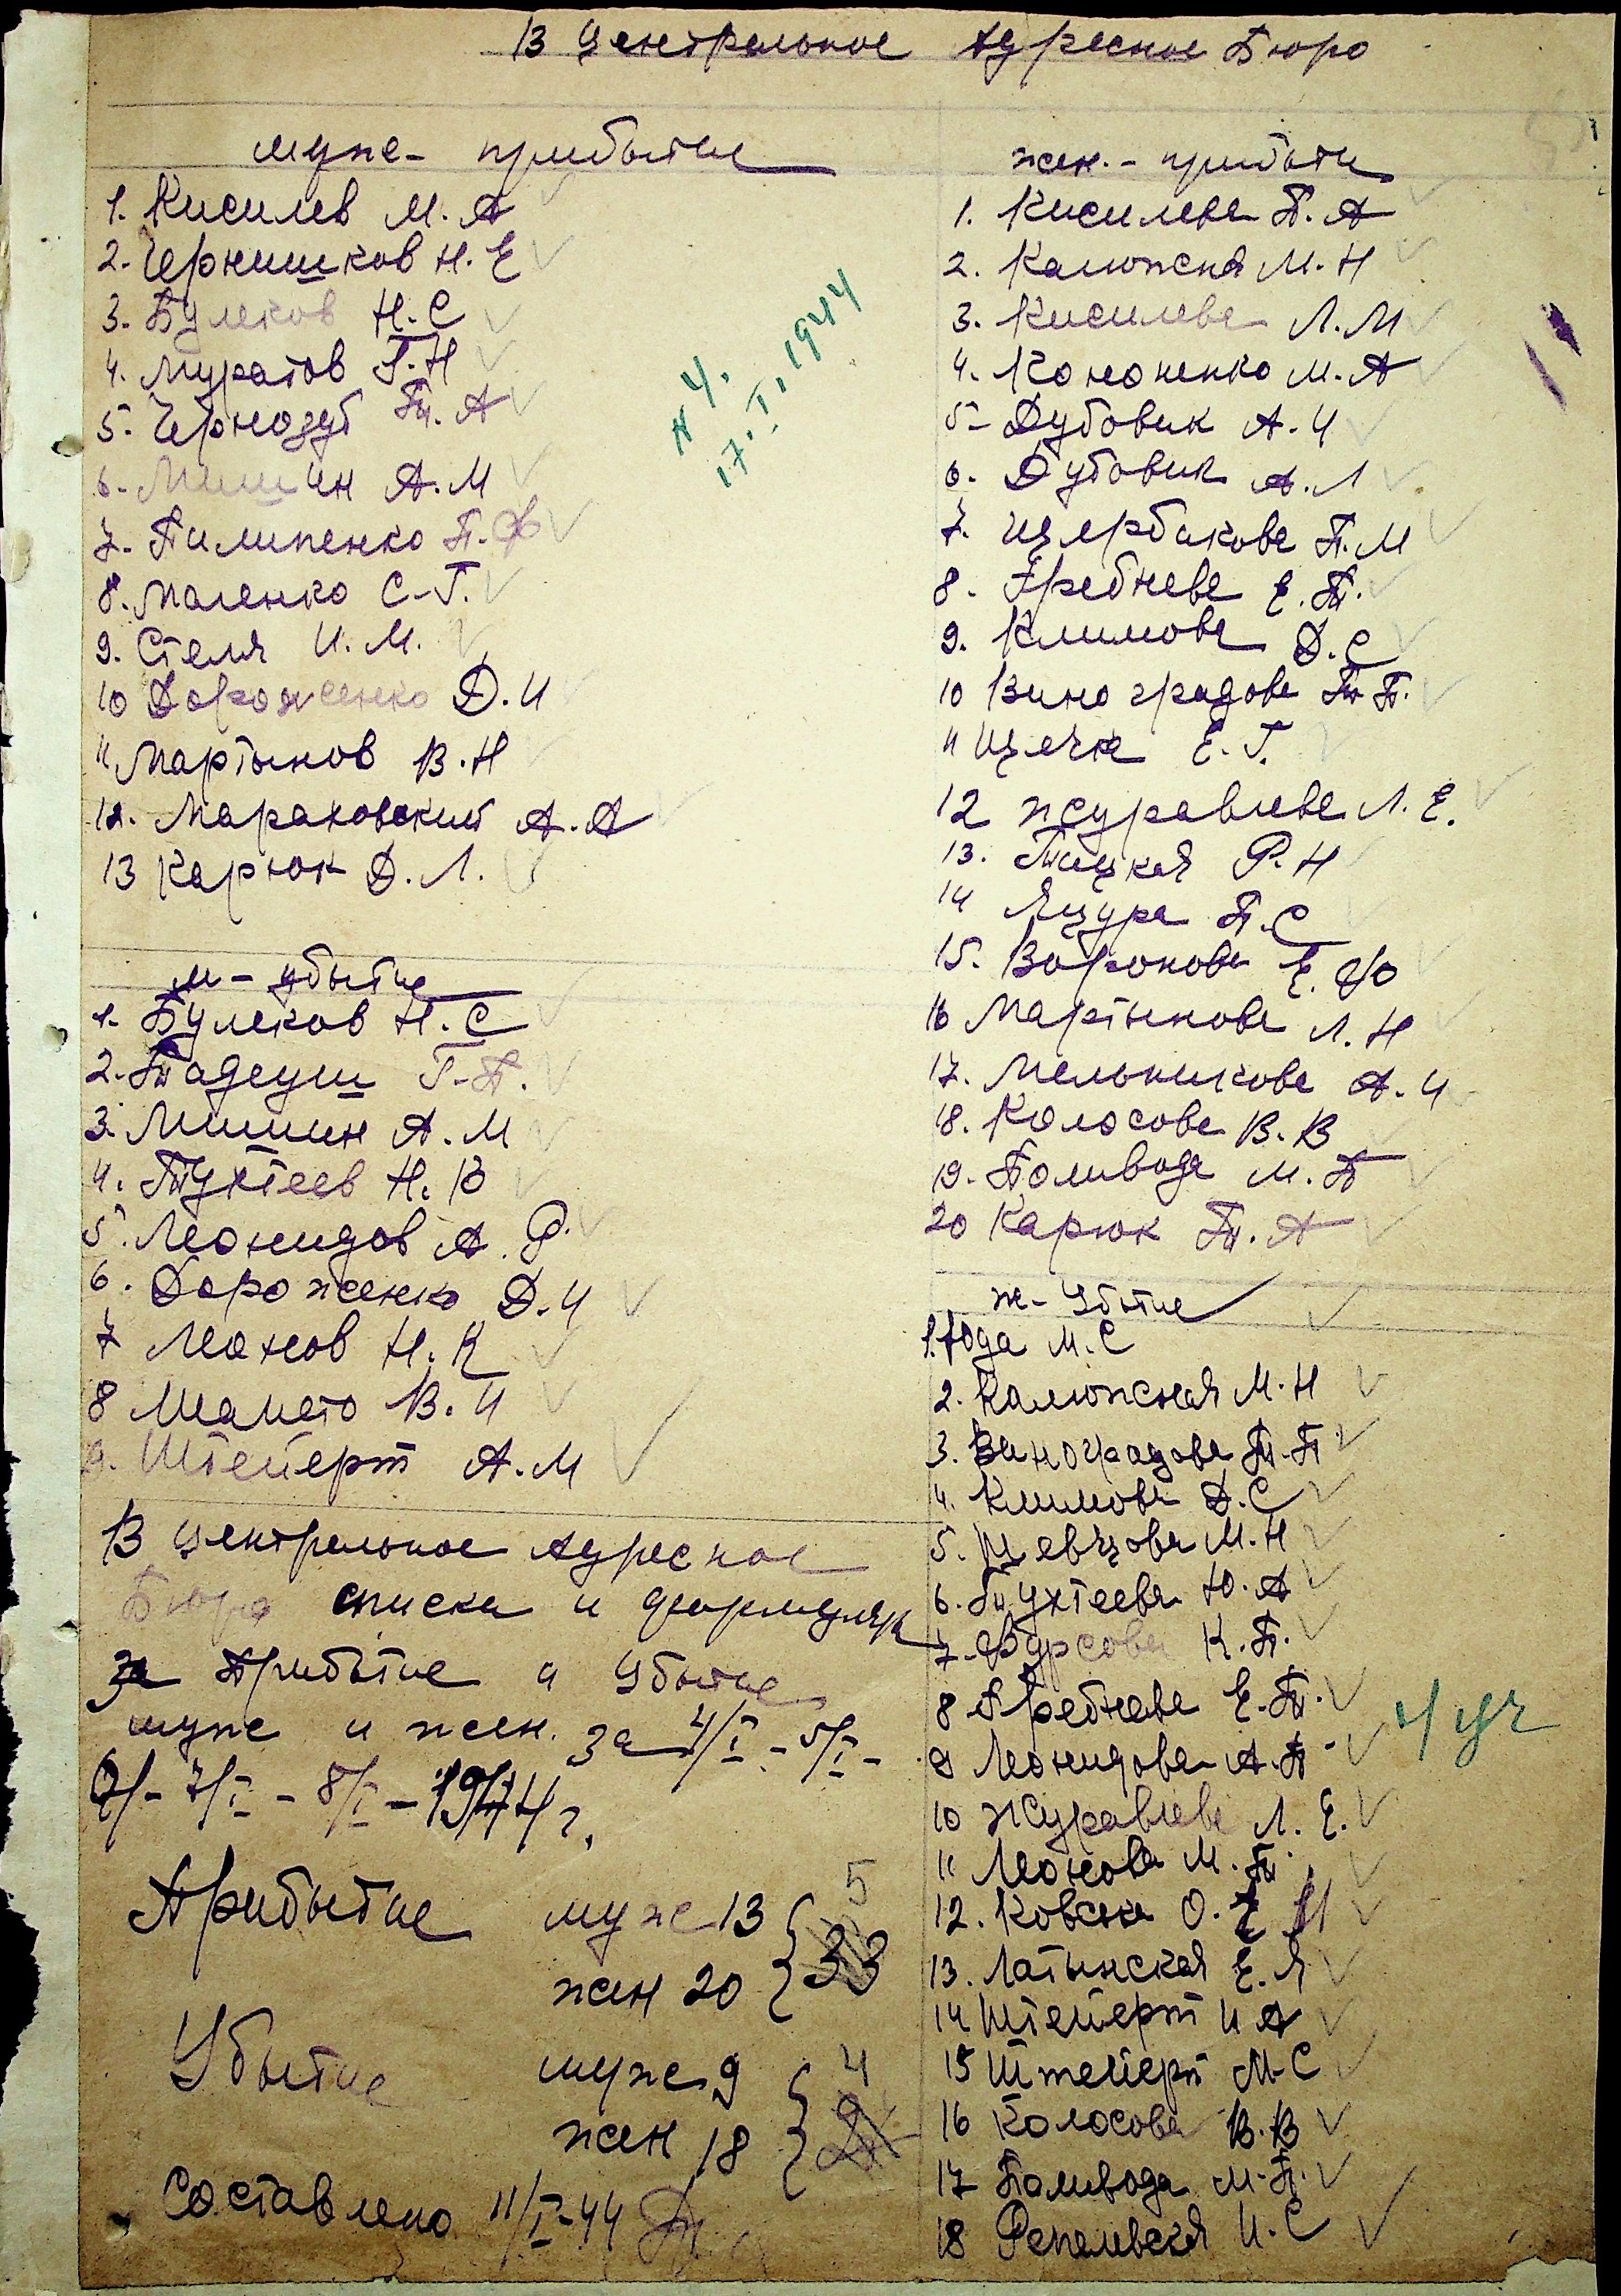 В Центральное Адресное Бюро
муже- прибытие
1. Кисилев М. А
2. Чернишков Н. Е
3. Булеков Н. С
4. Муратов Г. Н
5. Чернозуб Т. А
6. Мишин А. М
7. Пилипенко П. Ф
8. Маленко С. Г.
9. Стеля И. М.
10 Дороженко Д. И
11. Мартынов В. Н
12. Мараховский А. А
13 Карюк Д. Л.
N 4.
17. I. 1944
м - убытие
1. Булеков Н. С
2. Тадеуш Г. П.
3. Мишин А. М
4. Тухтеев Н. В
5. Леонидов А. Р.
6. Дороженко Д. И
7 Леонов Н. К
8 Шамето В. И
9. Штейерт А. М
В Центральное Адресное
Бюро списки и формуляр
за Прибытие и Убытие
муже и жен. за 4/I - 5/I -
6/ - 7/I - 8/I - 1944 г.
Прибытие муже 13
жен 20 } 33 5
Убытие муже 9
жен 18 } 4
Составлено 11/I-44
жен. - прибыти
1. Кисилева П. А
2. Калюжная М. Н
3. Кисилева Л. М
4. Кононенко М. А
5- Дубовик А. И
6. Дубовик А. Л
7. Щербакова П. М
8. Гребнева Е. Т.
9. Климова Д. С
10 Виноградова Т П.
11 Щечка Е. Г.
12 Журавлева Л. Е.
13. Тицкая Р. Н
14 Ящура П. С
15. Воронова Е. Ф
16 Мартынова Л. Н
17. Мельникова А. И
18. Колосова В. В
19. Поливода М. П
20 Карюк Т. А
ж- Убытие
1. Юда М. С
2. Калюжная М. Н
3. Виноградова Т. П
4. Климова Д. С
5. Шевцова М. Н
6. Тухтеева Ю. А
7. Фурсова К. П.
8 Гребнева Е. Т.
9 Леонидова А. П
4 уч
10 Журавлева Л. Е.
11 Леонова М. Т.
12. Ковска О.
13. Латынская Е. Я
14 Штейерт И А
15 Штейерт М. С
16 Колосова В. В
17 Поливода М. П.
18 Репелевская И. С